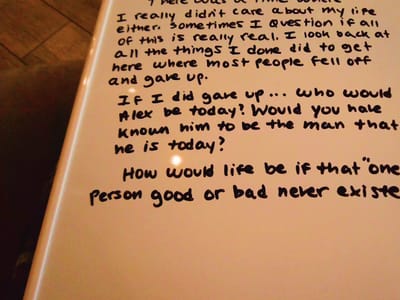 There was a time where
I really didn't care about my life
either. Sometimes I question if all
of this is really real. I look back at
all the things I done did to get
here where most people fell off
and gave up.
If I did gave up... who would
Alex be today? Would you have
known him to be the man that
he is today?
How would life be if that "one
person good or bad never existe